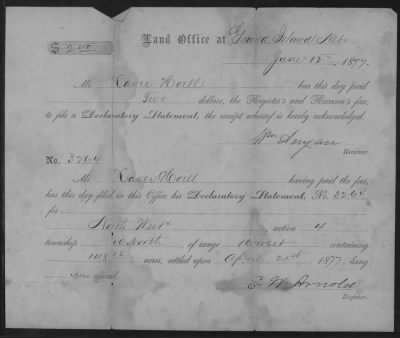 $ 2.00
Land Office at Grand Island Neb
June 12, 1877.
Mr. Xaver Horll has this day paid
Two dollars, the Register's and Receiver's fees,
to file a Declaratory Statement, the receipt whereof is hereby acknowledged.
Wm Anyan
Receiver.
No. 3264
Mr. Xaver Horll having paid the fees,
has this day filed in this Office his Declaratory Statement, No. 3264
for
North West, section 4
township 10 North, of range 10 west, containing
acres, settled upon April 21st, 1877, being
offered.
E. W. Arnold
Register.